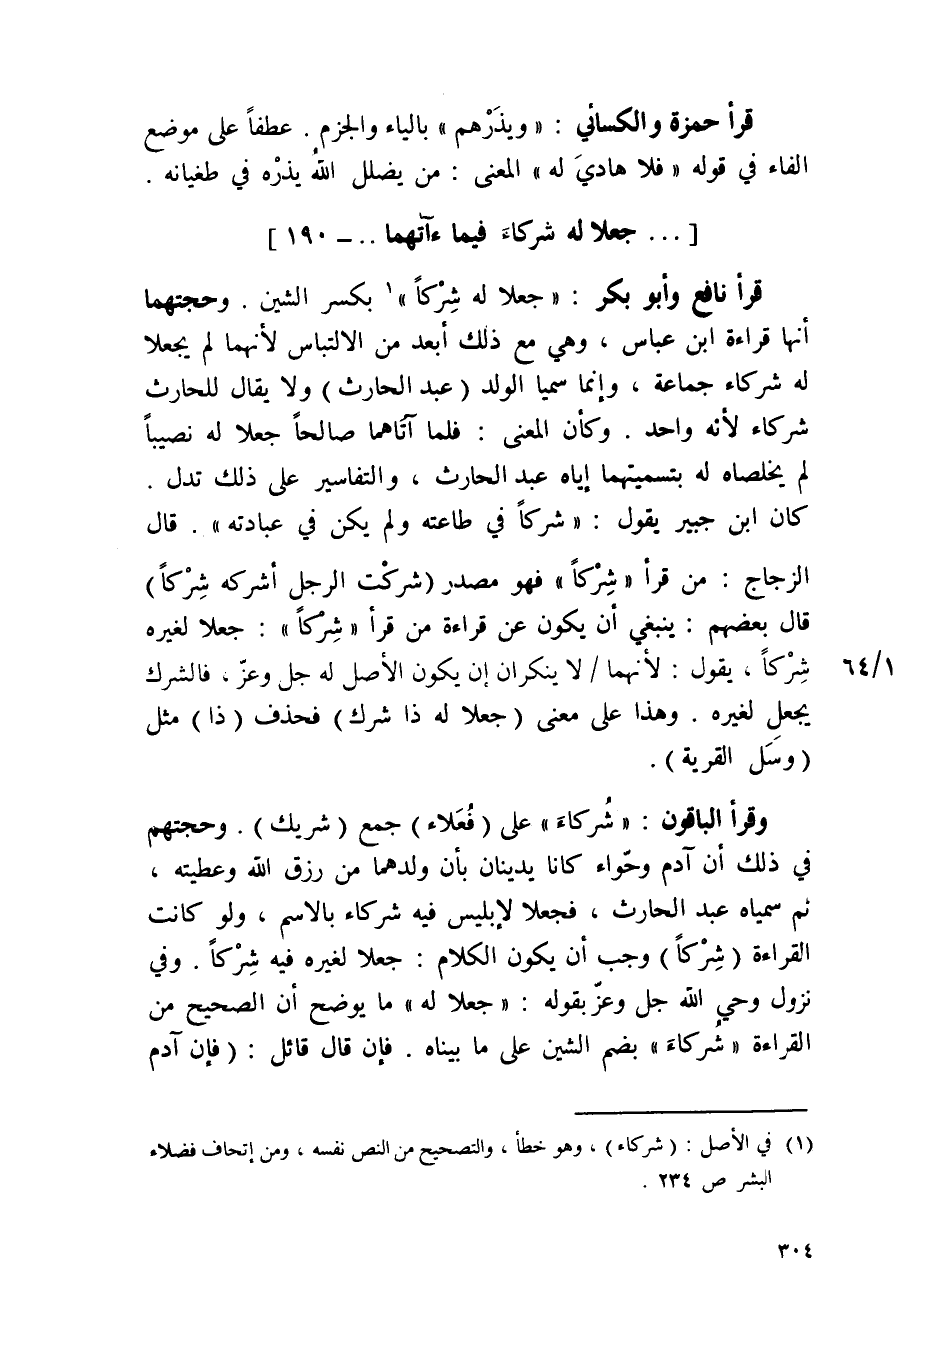 قرأ حمزة والكسائي : « ويذَرْهم » بالياء والجزم . عطفاً على موضع
الفاء في قوله « فلا هاديَ له » المعنى : من يضلل اللهُ يذرْه في طغيانه .
[ ... جعلا له شركاءَ فيما ءآتٰهما .. – ١٩٠ ]
قرأ نافع وأبو بكر : « جعلا له شِرْكاً »١ بكسر الشين . وحجتهما
أنها قراءة ابن عباس ، وهي مع ذلك أبعد من الالتباس لأنهما لم يجعلا
له شركاء جماعة ، وإنما سميا الولد ( عبد الحارث ) ولا يقال للحارث
شركاء لأنه واحد . وكأن المعنى : فلما آتاهما صالحاً جعلا له نصيباً
لم يخلصاه له بتسميتهما إياه عبد الحارث ، والتفاسير على ذلك تدل .
كان ابن جبير يقول : « شركاً في طاعته ولم يكن في عبادته » . قال
الزجاج : من قرأ « شِرْكاً » فهو مصدر (شركْت الرجل أشركه شِرْكاً)
قال بعضهم : ينبغي أن يكون عن قراءة من قرأ « شِرْكاً » : جعلا لغيره
شِرْكاً ، يقول : لأنهما / لا ينكران إن يكون الأصل له جل وعزّ ، فالشرك ٦٤/١
يجعل لغيره . وهذا على معنى ( جعلا له ذا شرك ) فحذف ( ذا ) مثل
( وسَل القرية ) .
وقرأ الباقون : « شُركاءَ » على ( فُعَلاء ) جمع ( شريك ) . وحجتهم
في ذلك أن آدم وحّواء كانا يدينان بأن ولدهما من رزق الله وعطيته ،
ثم سمياه عبد الحارث ، فجعلا لإبليس فيه شركاء بالاسم ، ولو كانت
القراءة ( شِرْكاً ) وجب أن يكون الكلام : جعلا لغيره فيه شِرْكاً . وفي
نزول وحي الله جل وعزّ بقوله : « جعلا له » ما يوضح أن الصحيح من
القراءة « شُركاءَ » بضم الشين على ما بيناه . فإن قال قائل : ( فإن آدم
(١) في الأصل : ( شركاء ) ، وهو خطأ ، والتصحيح من النص نفسه ، ومن إتحاف فضلاء
البشر ص ٢٣٤ .
٣٠٤